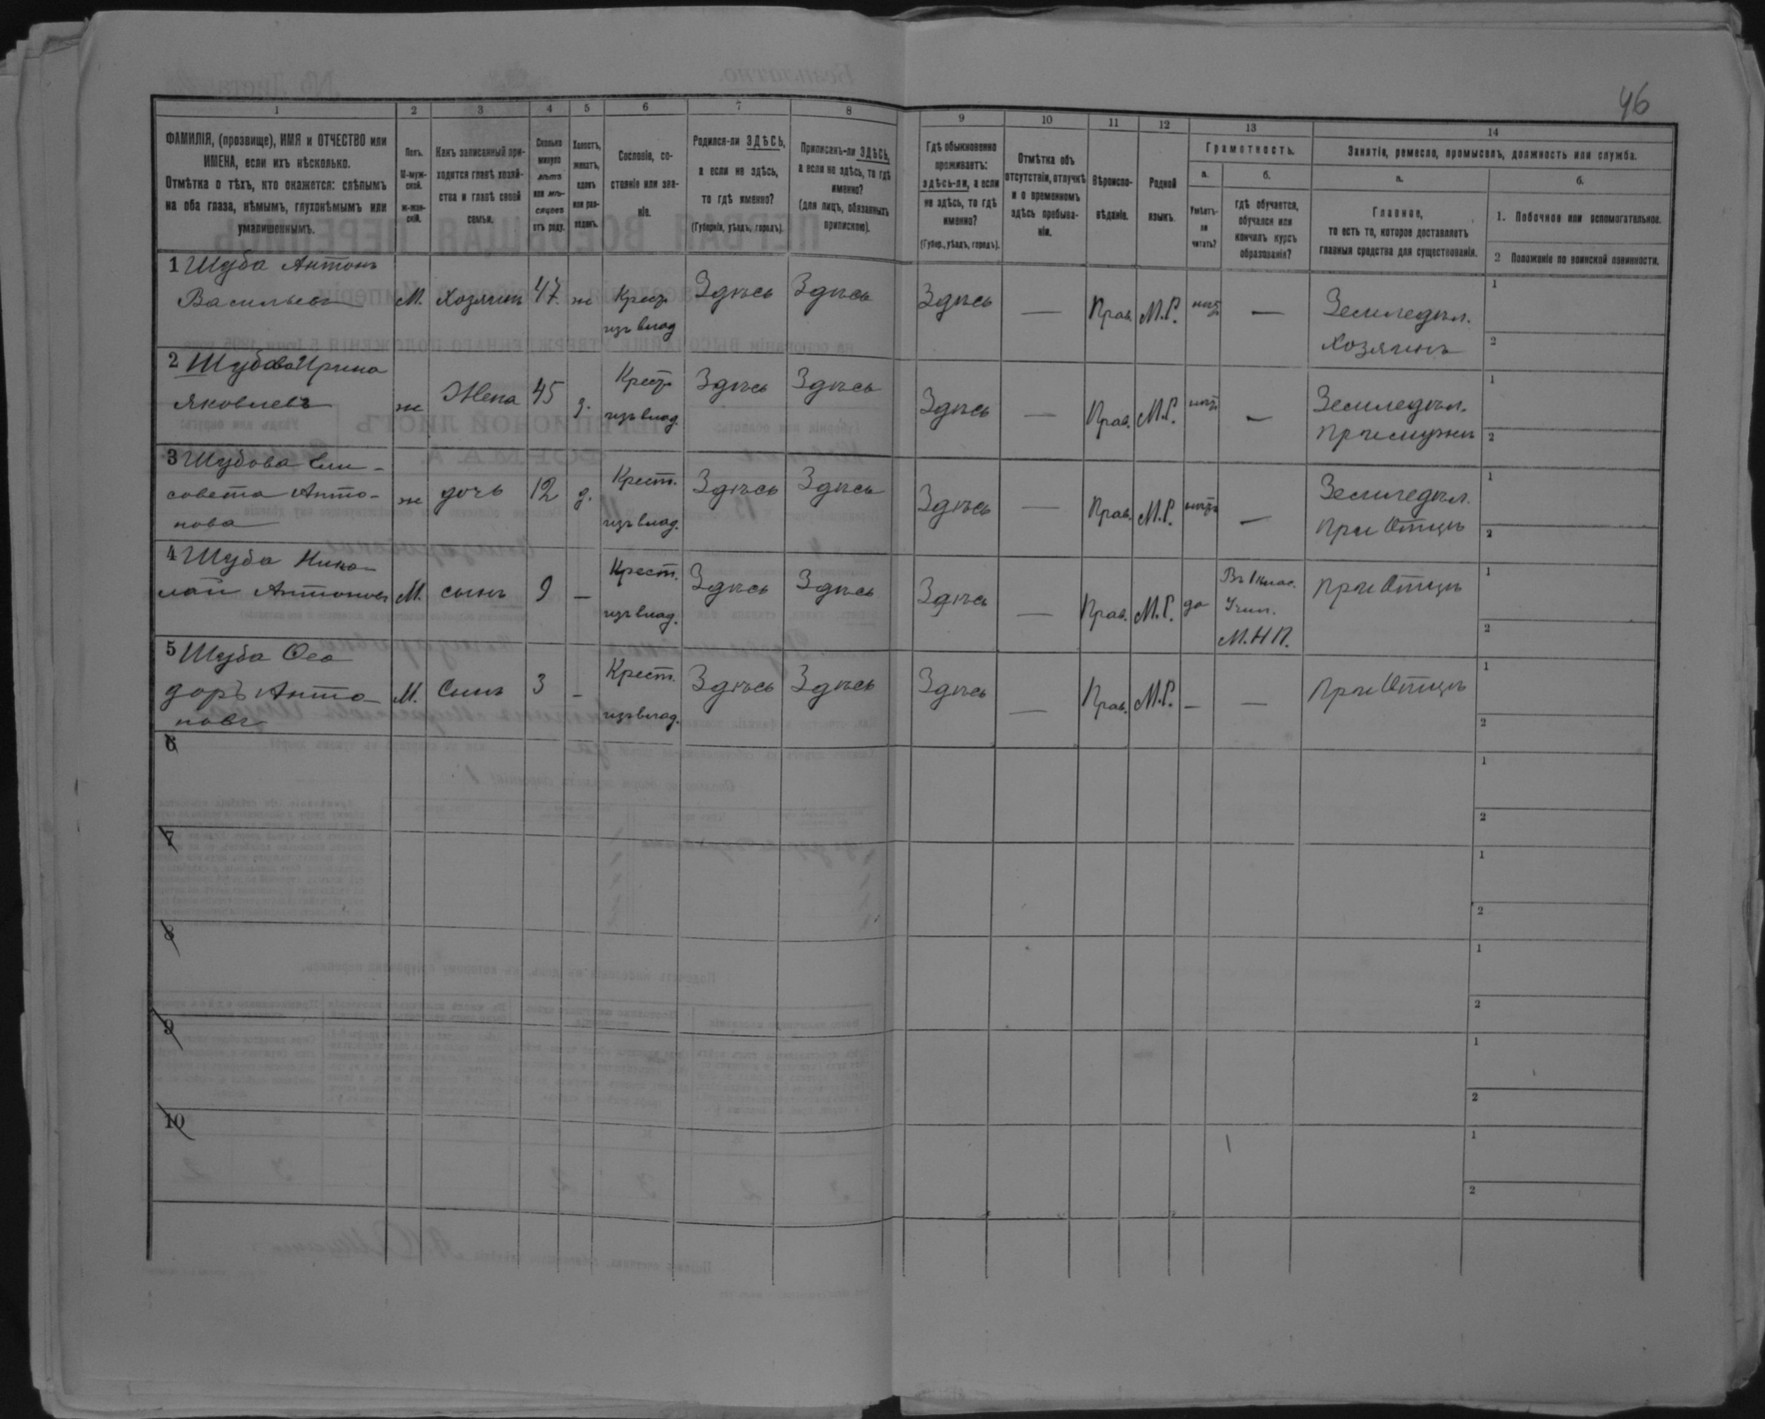 46
1 2 3 4 5 6 7 8 9 10 11 12 13 14
ФАМИЛІЯ, (прозвище), ИМЯ и ОТЧЕСТВО или
ИМЕНА, если ихъ нѣсколько.
Отмѣтка о тѣхъ, кто окажется: слѣпымъ
на оба глаза, нѣмымъ, глухонѣмымъ или
умалишеннымъ.
Полъ.
М-муж-
ской.
ж-жен-
скій.
Какъ записанный при-
ходится главѣ хозяй-
ства и главѣ своей
семьи.
Сколько
минуло
лѣтъ
или мѣ-
сяцевъ
отъ роду.
Холостъ,
женатъ,
вдовъ
или раз-
веденъ.
Сословіе, со-
стояніе или зва-
ніе.
Родился-ли ЗДѢСЬ,
а если не здѣсь,
то гдѣ именно?
(Губернія, уѣздъ, городъ).
Приписанъ-ли ЗДѢСЬ,
а если не здѣсь, то гдѣ
именно?
(для лицъ, обязанныхъ
припискою).
Гдѣ обыкновенно
проживаетъ:
здѣсь-ли, а если
не здѣсь, то гдѣ
именно?
(Губер., уѣздъ, городъ).
Отмѣтка объ
отсутствіи, отлучкѣ
и о временномъ
здѣсь пребыва-
ніи.
Вѣроиспо-
вѣданіе.
Родной
языкъ.
Грамотность.
а.
Умѣетъ-
ли
читать?
б.
гдѣ обучается,
обучался или
кончилъ курсъ
образованія?
Занятіе, ремесло, промыселъ, должность или служба.
а.
Главное,
то есть то, которое доставляетъ
главныя средства для существованія.
б.
1. Побочное или вспомогательное.
2 Положеніе по воинской повинности.
1 Шуба Антонъ
Васильевъ М. Хозяинъ 47 ж Крест. изъ влад. Здѣсь Здѣсь Здѣсь — Прав. М.Р. нѣтъ — Земледѣл.
Хозяинъ
1
2
2 Шубова Ирина
Яковлева ж Жена 45 з. Крест. изъ влад. Здѣсь Здѣсь Здѣсь — Прав. М.Р. нѣтъ — Земледѣл.
При мужѣ
1
2
3 Шубова Ели-
совета Анто-
нова ж дочь 12 д. Крест. изъ влад. Здѣсь Здѣсь Здѣсь — Прав. М.Р. нѣтъ — Земледѣл.
При Отцѣ
1
2
4 Шуба Нико-
лай Антоновъ М. сынъ 9 — Крест. изъ влад. Здѣсь Здѣсь Здѣсь — Прав. М.Р. да Въ 1 Клас.
Учил.
М.Н.П. При Отцѣ
1
2
5 Шуба Ѳео
доръ Анто-
новъ М. Сынъ 3 — Крест. изъ влад. Здѣсь Здѣсь Здѣсь — Прав. М.Р. — — При Отцѣ
1
2
6
1
2
7
1
2
8
1
2
9
1
2
10
1
2